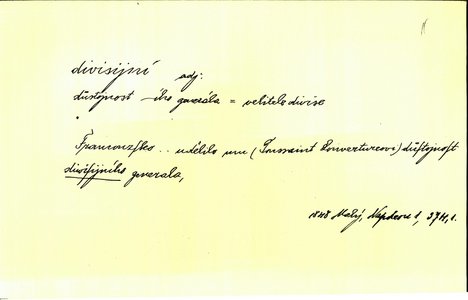 divisijní adj.
důstojnost -ího generála = velitele divise
Francouzsko .. udělilo mu (Toussaint Louvertureovi) důstojnost
divisijního generála,
1848 Malý, Napoleon 1, 374, 1.